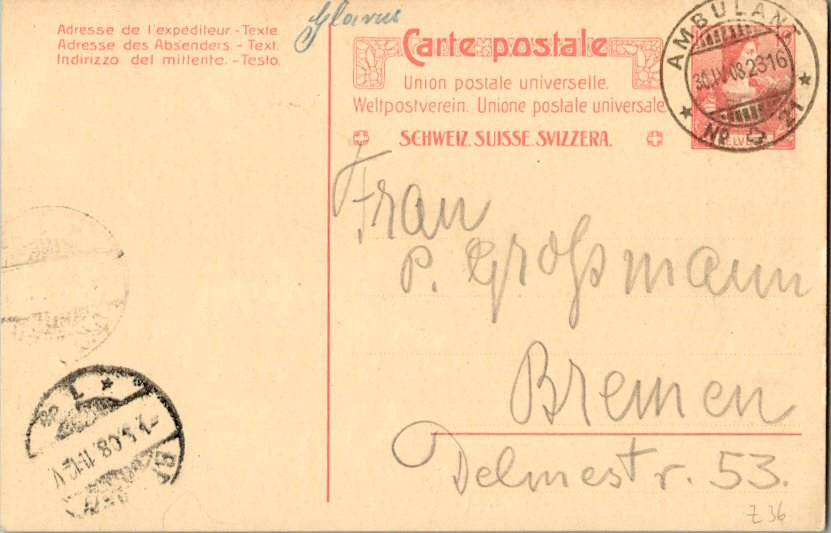 Adresse de l'expéditeur.-Texte.
Adresse des Absenders.-Text.
Indirizzo del mittente.-Testo.
Glarus
Carte postale
Union postale universelle.
Weltpostverein. Unione postale universale.
SCHWEIZ. SUISSE. SVIZZERA.
AMBULANT
30.IV.08 2316
No 21
Frau
P. Großmann
Bremen
Delmestr. 53.
1
1.5.08.11-12V
Z 36